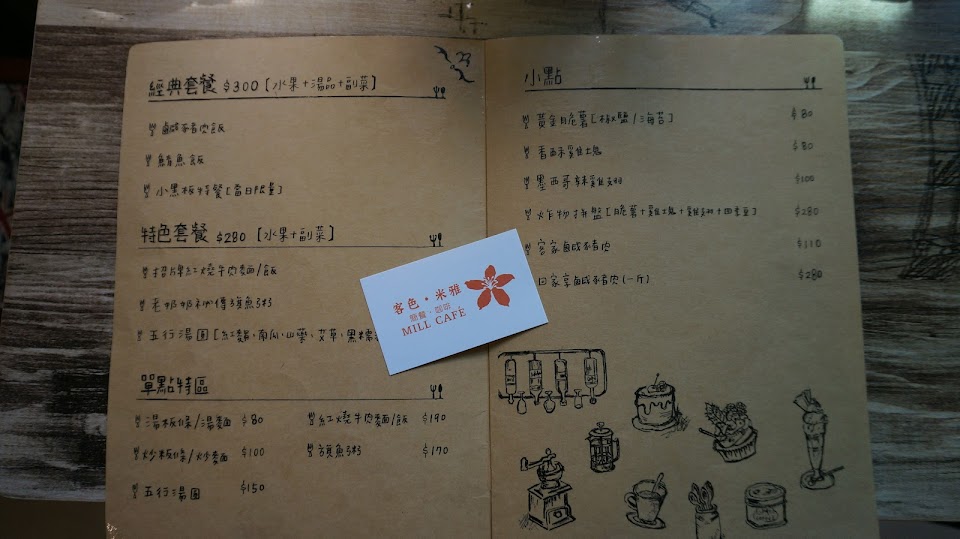 經典套餐 $300 [水果+湯品+副菜]
鹹豬肉飯
鯖魚飯
小黑板特餐[當日限量]
特色套餐 $280 [水果+副菜]
招牌紅燒牛肉麵/飯
老奶奶祕傳旗魚粥
五行湯圓[紅麴、南瓜、山藥、艾草、黑糯
單點特區
湯板條/湯麵 $80
紅燒牛肉麵/飯 $190
炒板條/炒麵 $100
旗魚粥 $170
五行湯圓 $150
小點
黃金脆薯[椒鹽/海苔] $80
香酥雞塊 $80
墨西哥辣雞翅 $100
炸物拼盤[脆薯+雞塊+雞翅+四季豆] $280
客家鹹豬肉 $110
回家享鹹豬肉(一斤) $280
客色·米雅
簡餐·咖啡
MILL CAFÉ